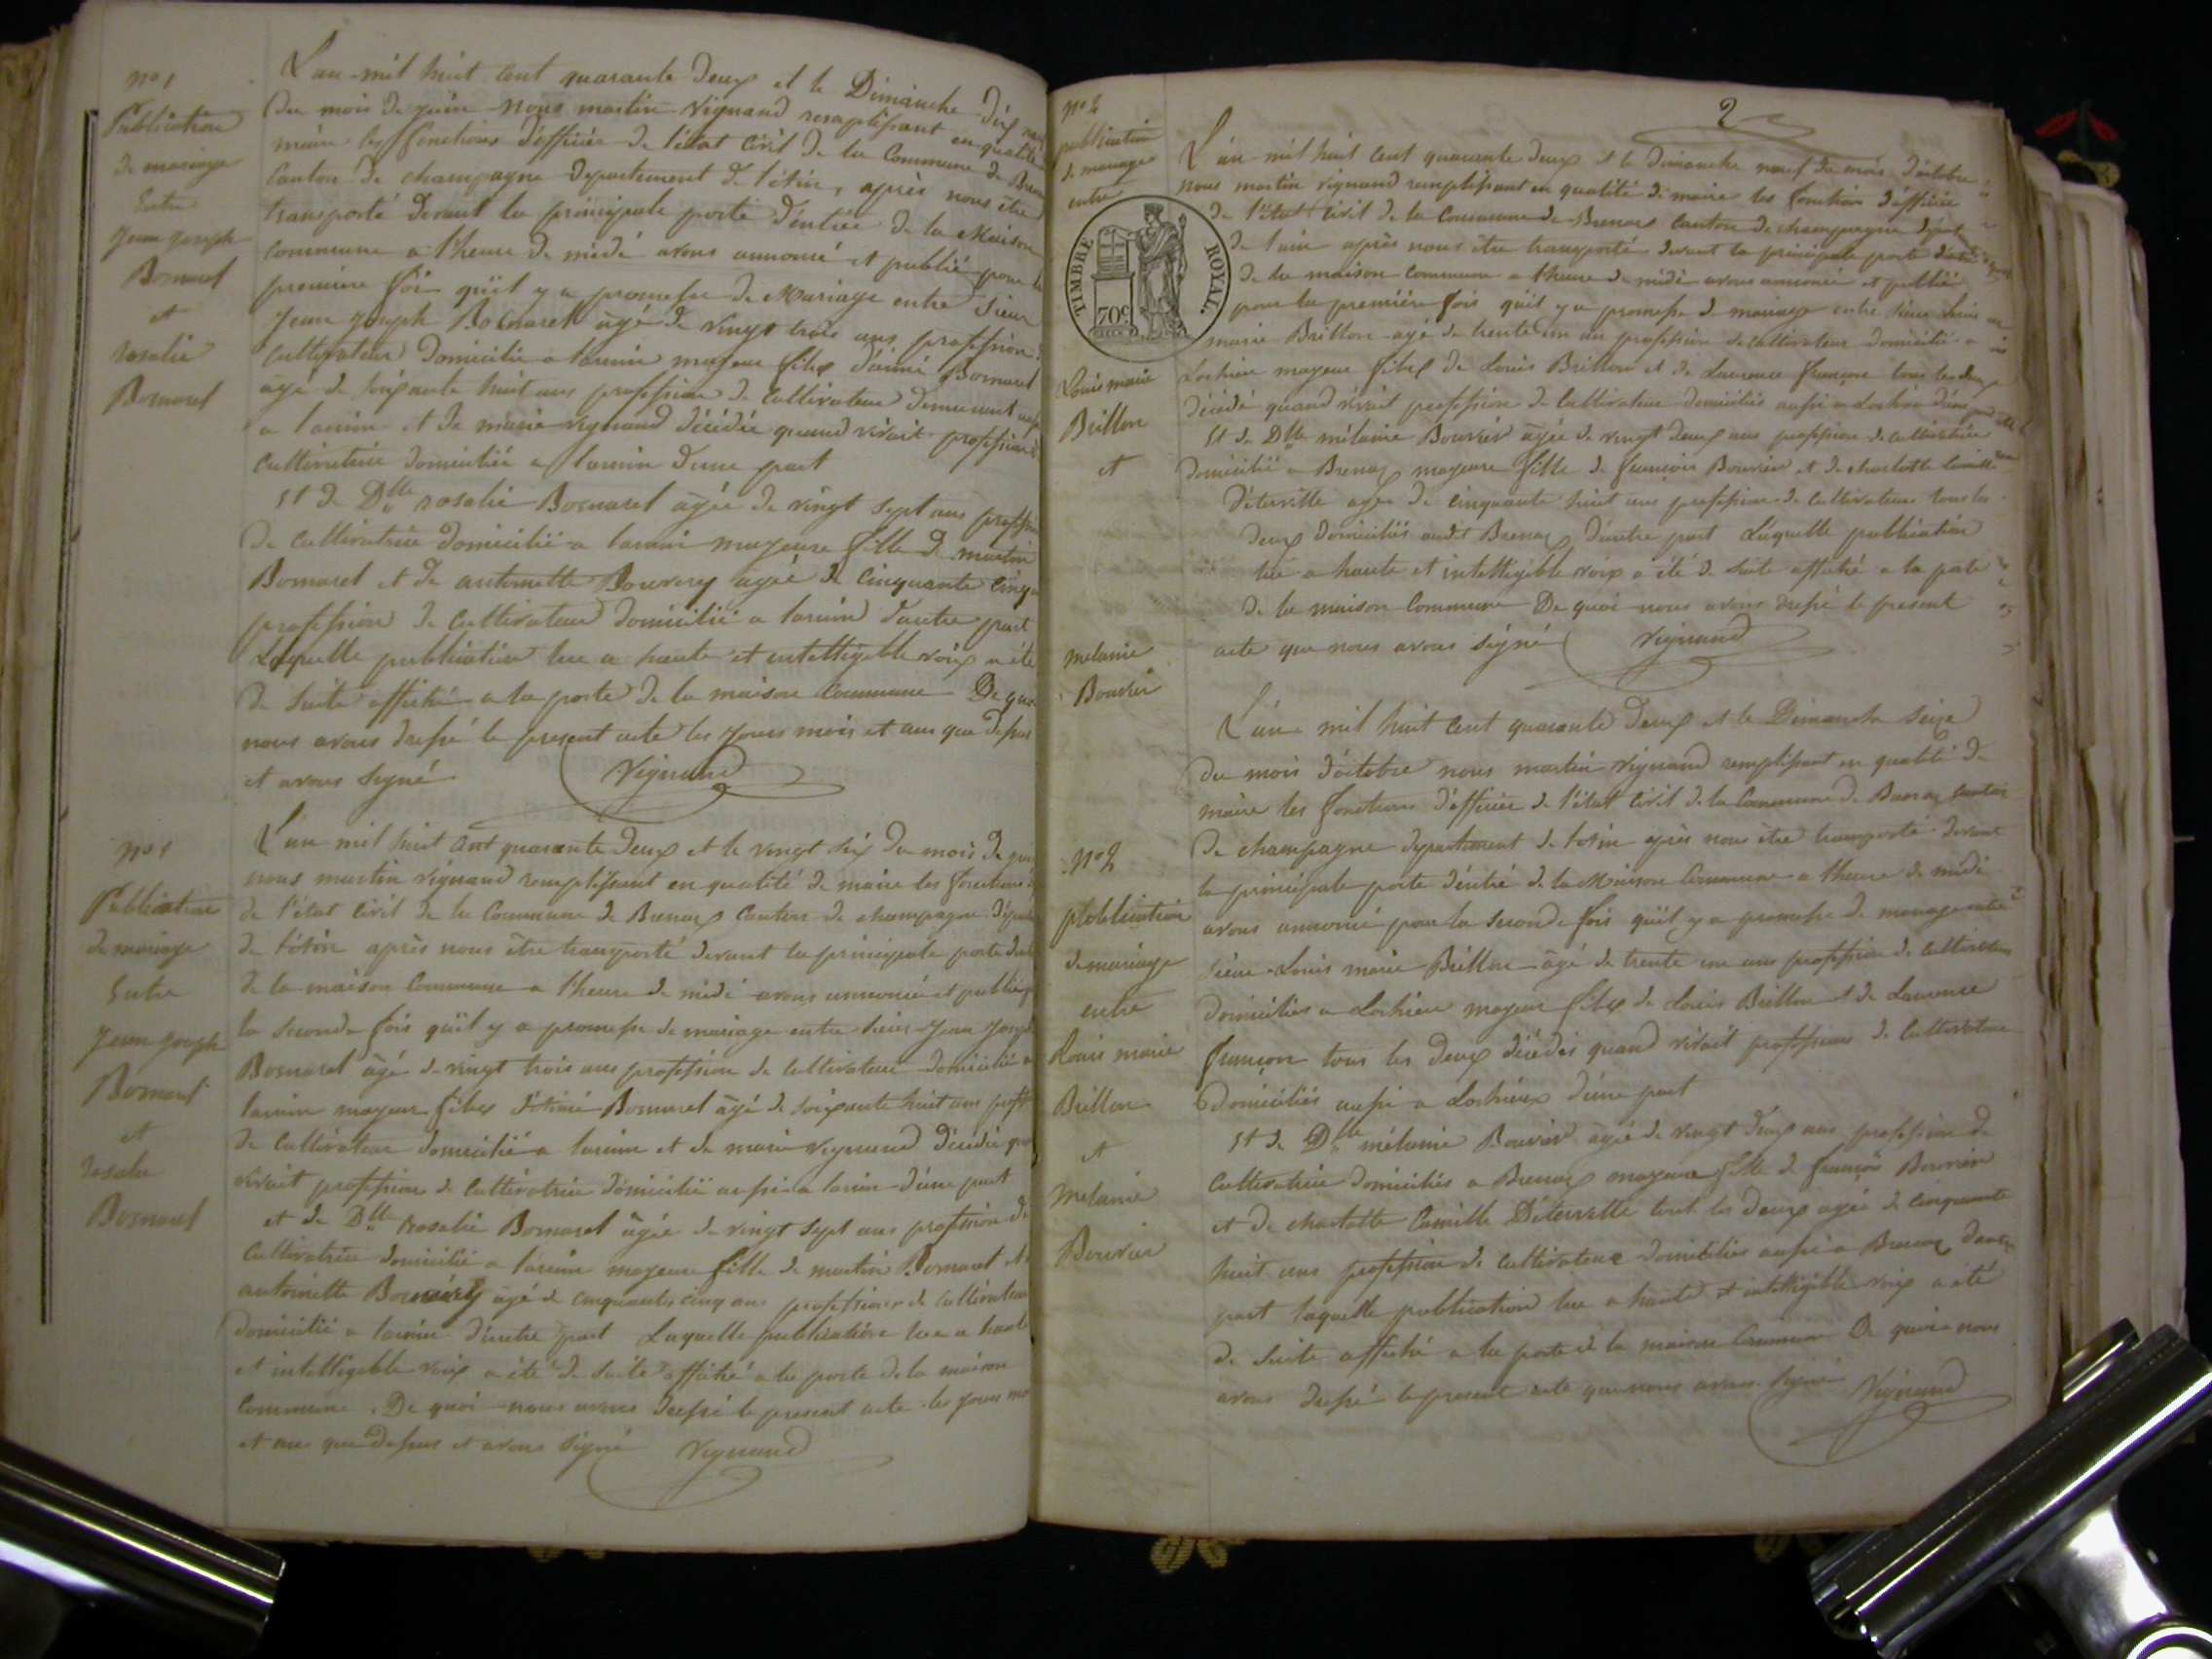 nº 1
Publication
de mariage
Entre
Jean Joseph
Bornarel
et
rosalie
Bornarel
L'an mil huit cent quarante deux et le Dimanche dix neuf
du mois de juin nous martin vignand remplissant en qualité
maire les fonctions d'officier de l'état civil de la Commune de
Canton de champagne departement de l'ain, après nous être
transporté devant la principale porte d'entrée de la Maison
commune a l'heure de midi avons annoncé et publié pour la
premiere foi qu'il y a promesse de Mariage entre Sieur
Jean joseph Bornarel agé de vingt trois ans profession
cultivateur Domicilié a lavim majeur fils d'aimé Bornarel
agé de soixante huit ans profession de cultivateur demeurant
a lavim et de marie vignand décédée quand vivait profession
cultivatrice domiciliée a lavim d'une part
et de Dlle rosalie Bornarel agée de vingt sept ans
de cultivatrice domicilié a lavim majeure fille de martin
Bornarel et de antoinette Bouvery agée de cinquante cinq
profession de cultivateur domicilié a lavim d'autre part
Laquelle publication lue a haute et intelligible voix a été
de suite affiché a la porte de la maison commune De quoi
nous avons dressé le present acte les jours mois et ans que dessus
et avons signé Vignand
nº 1
Publication
de mariage
Entre
Jean joseph
Bornarel
et
rosalie
Bornarel
L'an mil huit cent quarante deux et le vingt six du mois de juin
nous martin vignand remplissant en qualité de maire les fonctions
de l'état civil de la Commune de Brenaz canton de champagne
de l'ain après nous être transporté devant la principale porte
de la maison commune a l'heure de midi avons annoncé et publié
la seconde fois qu'il y a promesse de mariage entre sieur Jean Joseph
Bornarel agé de vingt trois ans profession de cultivateur domicilié a
lavim majeur fils d'aimé Bornarel agé de soixante huit ans
de cultivateur domicilié a lavim et de marie vignand décédée
vivait profession de cultivatrice domicilié aussi a lavim d'une part
et de Dlle rosalie Bornarel agée de vingt sept ans profession de
cultivatrice domicilié a lavim majeure fille de martin Bornarel et
antoinette agé de cinquante cinq ans profession de cultivateur
domicilié a lavim d'autre part Laquelle publication lue a haute
et intelligible voix a été de suite affiché a la porte de la maison
Commune. De quoi nous avons dressé le present acte les jours
et an que dessus et avons signé Vignand
2
nº 2
publication
de mariage
entre
TIMBRE ROYAL.
70c
Louis marie
Brillon
et
melanie
Bouvier
L'an mil huit cent quarante deux et le dimanche neuf du mois d'octobre
nous martin vignand remplissant en qualité de maire les fonction d'officier
de l'état civil de la Commune de Brenaz canton de champagne
de l'ain après nous être transporté devant la principale porte
de la maison commune a l'heure de midi avons annoncé et publié
pour la premiére fois qu'il y a promesse de mariage entre sieur Louis
marie Brillon agé de trente un an profession de cultivateur domicilié a
Lochieu majeur fils de Louis Brillon et de Laurence françon tous les deux
décédé quand vivait profession de cultivateur domiciliés aussi a Lochieu
et de Dlle mélanie Bouvier agée de vingt deux ans profession de cultivatrice
domicilié a Brenaz majeure fille de françois Bouvier et de charlotte camille
agée de cinquante huit ans profession de cultivateur tous les
deux domiciliés audit Brenaz d'autre part Laquelle publication
lue a haute et intelligible voix a été de suite affiché a la porte
de la maison commune De quoi nous avons dressé le present
acte que nous avons signé Vignand
nº 2
publication
de mariage
entre
Louis marie
Brillon
et
melanie
Bouvier
L'an mil huit cent quarante deux et le Dimanche seize
du mois d'octobre nous martin vignand remplissant en qualité de
maire les fonctions d'officier de l'état civil de la Commune de Brenaz canton
de champagne departement de l'ain après nous être transporté devant
la principale porte d'entré de la Maison Commune a l'heure de midi
avons annoncé pour la seconde fois qu'il y a promesse de mariage entre
sieur Louis marie Brillon agé de trente un ans profession de cultivateur
domiciliés a Lochieu majeur fils de Louis Brillon et de Laurence
françon tous les deux décédés quand vivait profession de cultivateur
domiciliés aussi a Lochieux d'une part
et de Dlle mélanie Bouvier agée de vingt deux ans profession de
cultivatrice domiciliés a Brenaz majeure fille de françois Bouvier
et de charlotte Camille tout les deux agée de cinquante
huit ans profession de cultivateur domiciliés aussi a Brenaz
part laquelle publication lue a haute et intelligible voix a été
de suite affiché a la porte de la maison Commune De quoi nous
avons dressé le present acte que nous avons signé Vignand